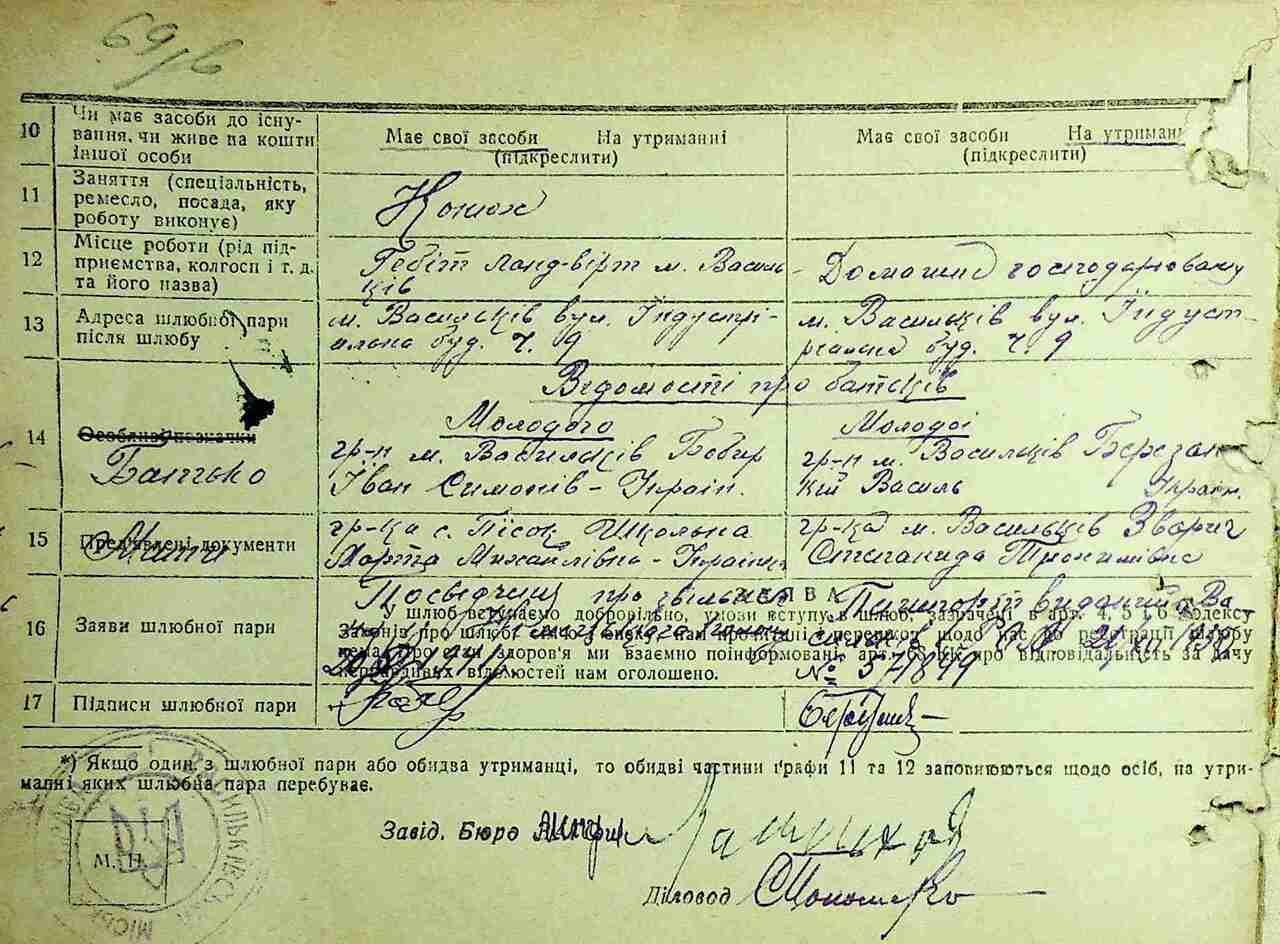 69/б
10
Чи має засоби до існу-
вання, чи живе на кошти
іншої особи
Має свої засоби На утриманні
(підкреслити)
Має свої засоби На утриманн
(підкреслити)
11
Заняття (спеціальність,
ремесло, посада, яку
роботу виконує)
Конюх
12
Місце роботи (рід під-
приємства, колгосп і т. д.
та його назва)
Гебіт Ланд-вірт м. Василь-
ків
Домашнє господарювану
13
Адреса шлюбної пари
після шлюбу
м. Васильків вул. Індустрі-
альна буд. ч. 9
м. Васильків вул. Індуст-
ріальна буд. ч. 9
Відомості про батьків
14
Особливі позначки
Батько
Молодого
гр-н м. Васильків Бобир
Іван Симонів - Україн.
Молодої
гр-н м. Васильків Березан
кий Василь Україн.
15
Пред'явлені документи
Мати
гр-ка с. Пісок Школьна
Марта Михайлівна - Україн
гр-ка м. Васильків Зварич
Степанида Трохимівна
16
Заяви шлюбної пари
ЗАЯВА
У шлюб вступаємо добровільно, умови вступу в шлюб, зазначені в арт. 4, 5 і 6 Кодексу
Законів про шлюб
щодо нас до реєстрації шлюбу
нема. Про стан здоров'я ми взаємно поінформовані, арт. 68 КК про відповідальність за дачу
неправдивих відомостей нам оголошено.
Посвідчення про звільнен
Пашпорт виданий Ва
№ 571849
17
Підписи шлюбної пари
*) Якщо один з шлюбної пари або обидва утриманці, то обидві частини графи 11 та 12 заповнюються щодо осіб, на утри-
манні яких шлюбна пара перебуває.
Завід. Бюро
М. П.
Діловод